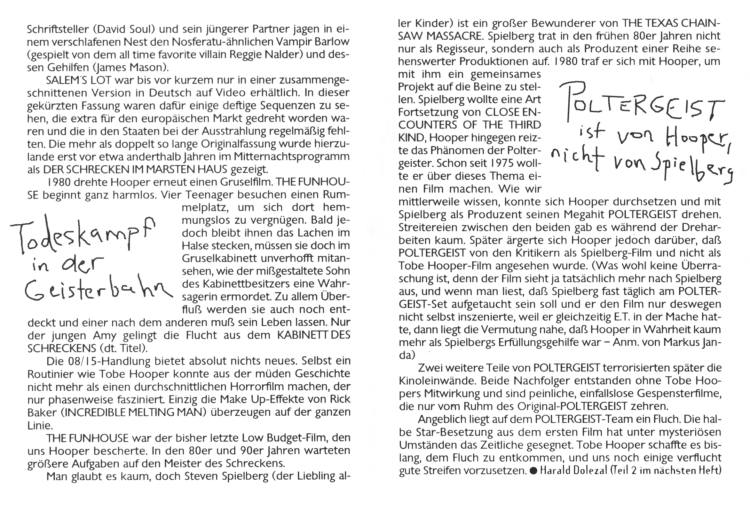 Schriftsteller (David Soul) und sein jüngerer Partner jagen in ei-
nem verschlafenen Nest den Nosferatu-ähnlichen Vampir Barlow
(gespielt von dem all time favorite villain Reggie Nalder) und des-
sen Gehilfen (James Mason).
SALEM'S LOT war bis vor kurzem nur in einer zusammenge-
schnittenen Version in Deutsch auf Video erhältlich. In dieser
gekürzten Fassung waren dafür einige deftige Sequenzen zu se-
hen, die extra für den europäischen Markt gedreht worden wa-
ren und die in den Staaten bei der Ausstrahlung regelmäßig fehl-
ten. Die mehr als doppelt so lange Originalfassung wurde hierzu-
lande erst vor etwa anderthalb Jahren im Mitternachtsprogramm
als DER SCHRECKEN IM MARSTEN HAUS gezeigt.
1980 drehte Hooper erneut einen Gruselfilm. THE FUNHOU-
SE beginnt ganz harmlos. Vier Teenager besuchen einen Rum-
melplatz, um sich dort hem-
mungslos zu vergnügen. Bald je-
doch bleibt ihnen das Lachen im
Halse stecken, müssen sie doch im
Gruselkabinett unverhofft mitan-
sehen, wie der mißgestaltete Sohn
des Kabinettbesitzers eine Wahr-
sagerin ermordet. Zu allem Über-
fluß werden sie auch noch ent-
deckt und einer nach dem anderen muß sein Leben lassen. Nur
der jungen Amy gelingt die Flucht aus dem KABINETT DES
SCHRECKENS (dt. Titel).
Todeskampf
in der
Geisterbahn
Die 08/15-Handlung bietet absolut nichts neues. Selbst ein
Routinier wie Tobe Hooper konnte aus der müden Geschichte
nicht mehr als einen durchschnittlichen Horrorfilm machen, der
nur phasenweise fasziniert. Einzig die Make Up-Effekte von Rick
Baker (INCREDIBLE MELTING MAN) überzeugen auf der ganzen
Linie.
THE FUNHOUSE war der bisher letzte Low Budget-Film, den
uns Hooper bescherte. In den 80er und 90er Jahren warteten
größere Aufgaben auf den Meister des Schreckens.
Man glaubt es kaum, doch Steven Spielberg (der Liebling al-
ler Kinder) ist ein großer Bewunderer von THE TEXAS CHAIN-
SAW MASSACRE. Spielberg trat in den frühen 80er Jahren nicht
nur als Regisseur, sondern auch als Produzent einer Reihe se-
henswerter Produktionen auf. 1980 traf er sich mit Hooper, um
mit ihm ein gemeinsames
Projekt auf die Beine zu stel-
len. Spielberg wollte eine Art
Fortsetzung von CLOSE EN-
COUNTERS OF THE THIRD
KIND, Hooper hingegen reiz-
te das Phänomen der Polter-
geister. Schon seit 1975 woll-
te er über dieses Thema ei-
nen Film machen. Wie wir
POLTERGEIST
ist von Hooper,
nicht von Spielberg
mittlerweile wissen, konnte sich Hooper durchsetzen und mit
Spielberg als Produzent seinen Megahit POLTERGEIST drehen.
Streitereien zwischen den beiden gab es während der Drehar-
beiten kaum. Später ärgerte sich Hooper jedoch darüber, daß
POLTERGEIST von den Kritikern als Spielberg-Film und nicht als
Tobe Hooper-Film angesehen wurde. (Was wohl keine Überra-
schung ist, denn der Film sieht ja tatsächlich mehr nach Spielberg
aus, und wenn man liest, daß Spielberg fast täglich am POLTER-
GEIST-Set aufgetaucht sein soll und er den Film nur deswegen
nicht selbst inszenierte, weil er gleichzeitig E.T. in der Mache hat-
te, dann liegt die Vermutung nahe, daß Hooper in Wahrheit kaum
mehr als Spielbergs Erfüllungsgehilfe war – Anm. von Markus Jan-
da)
Zwei weitere Teile von POLTERGEIST terrorisierten später die
Kinoleinwände. Beide Nachfolger entstanden ohne Tobe Hoo-
pers Mitwirkung und sind peinliche, einfallslose Gespensterfilme,
die nur vom Ruhm des Original-POLTERGEIST zehren.
Angeblich liegt auf dem POLTERGEIST-Team ein Fluch. Die hal-
be Star-Besetzung aus dem ersten Film hat unter mysteriösen
Umständen das Zeitliche gesegnet. Tobe Hooper schaffte es bis-
lang, dem Fluch zu entkommen, und uns noch einige verflucht
gute Streifen vorzusetzen. ● Harald Dolezal (Teil 2 im nächsten Heft)